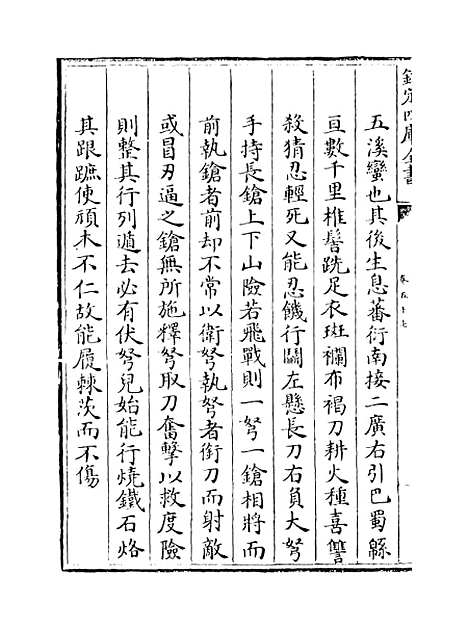 欽定四庫全書
卷五十七
五溪蠻也其後生息蕃衍南接二廣右引巴蜀緜
亘數千里椎髻跣足衣斑斕布褐刀耕火種喜讐
殺猜忍輕死又能忍饑行鬭左懸長刀右負大弩
手持長鎗上下山險若飛戰則一弩一鎗相將而
前執鎗者前却不常以衛弩執弩者銜刀而射敵
或冒刃逼之鎗無所施釋弩取刀奮擊以救度險
則整其行列遁去必有伏弩兒始能行燒鐵石烙
其跟蹠使頑木不仁故能履棘茨而不傷